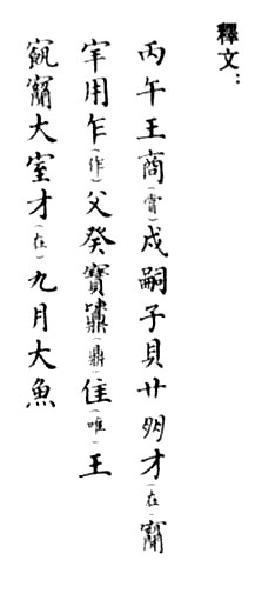 釋文：
丙午王商（賞）戍嗣子貝廿朋才（在）
用乍（作）父癸寶（鼎）隹（唯）王
大室才（在）九月大魚